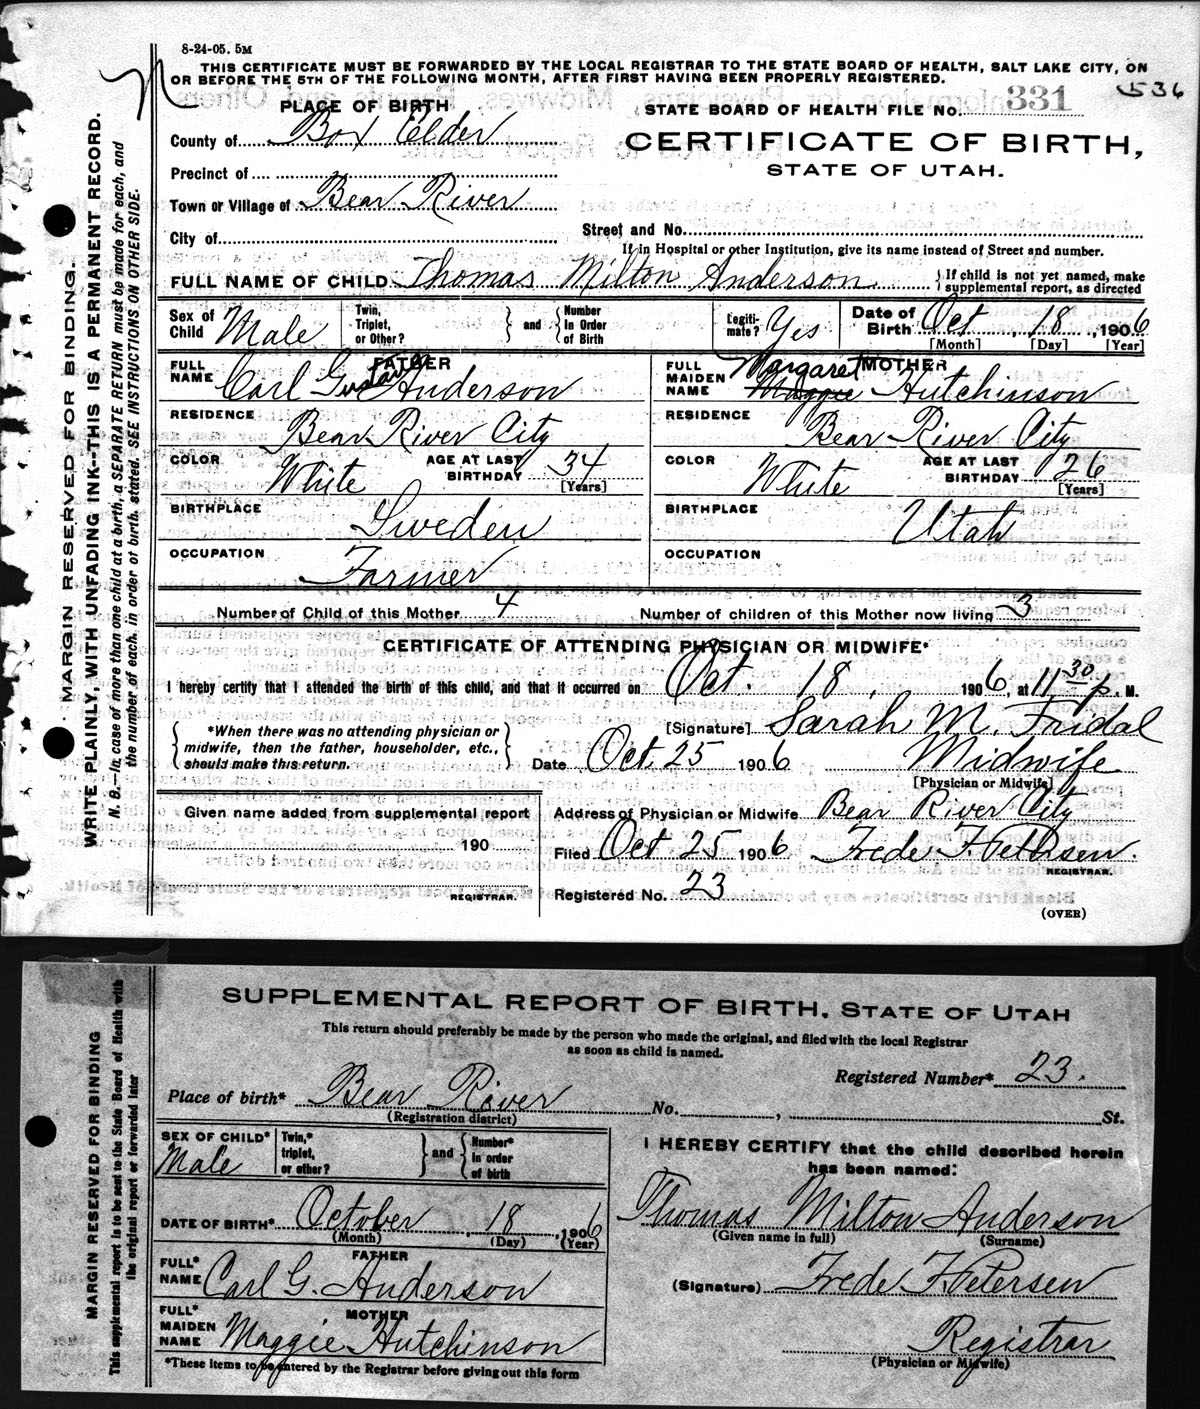 8-24-05. 5M
THIS CERTIFICATE MUST BE FORWARDED BY THE LOCAL REGISTRAR TO THE STATE BOARD OF HEALTH, SALT LAKE CITY, ON
OR BEFORE THE 5TH OF THE FOLLOWING MONTH, AFTER FIRST HAVING BEEN PROPERLY REGISTERED.
536
PLACE OF BIRTH
STATE BOARD OF HEALTH FILE No. 331
County of Box Elder
CERTIFICATE OF BIRTH,
STATE OF UTAH.
Precinct of
Town or Village of Bear River
City of
Street and No.
If in Hospital or other Institution, give its name instead of Street and number.
FULL NAME OF CHILD Thomas Milton Anderson
} If child is not yet named, make supplemental report, as directed
Sex of Child Male
Twin, Triplet, or Other?
} and { Number In Order of Birth
Legiti- mate? Yes
Date of Birth Oct 18, 1906
[Month] [Day] [Year]
FATHER
FULL NAME Carl Gustav Anderson
MOTHER
FULL MAIDEN NAME Margaret Maggie Hutchinson
RESIDENCE Bear River City
RESIDENCE Bear River City
COLOR White AGE AT LAST BIRTHDAY 34 [Years]
COLOR White AGE AT LAST BIRTHDAY 26 [Years]
BIRTHPLACE Sweden
BIRTHPLACE Utah
OCCUPATION Farmer
OCCUPATION
Number of Child of this Mother 4
Number of children of this Mother now living 3
CERTIFICATE OF ATTENDING PHYSICIAN OR MIDWIFE*
I hereby certify that I attended the birth of this child, and that it occurred on Oct. 18, 1906, at 11 30 P. M.
{ *When there was no attending physician or midwife, then the father, householder, etc., should make this return. }
[Signature] Sarah M. Fridal
Date Oct. 25 1906 Midwife
[Physician or Midwife]
Given name added from supplemental report
190
REGISTRAR.
Address of Physician or Midwife Bear River City
Filed Oct 25 1906 Frede F. Petersen.
REGISTRAR.
Registered No. 23
(OVER)
MARGIN RESERVED FOR BINDING.
WRITE PLAINLY, WITH UNFADING INK--THIS IS A PERMANENT RECORD.
N. B.--In case of more than one child at a birth, a SEPARATE RETURN must be made for each, and
the number of each, in order of birth, stated. SEE INSTRUCTIONS ON OTHER SIDE.
SUPPLEMENTAL REPORT OF BIRTH, STATE OF UTAH
This return should preferably be made by the person who made the original, and filed with the local Registrar
as soon as child is named.
Registered Number* 23.
Place of birth* Bear River No. , St.
(Registration district)
SEX OF CHILD* Male
Twin,* triplet, or other?
} and { Number* In order of birth
I HEREBY CERTIFY that the child described herein
has been named:
Thomas Milton Anderson
(Given name in full) (Surname)
DATE OF BIRTH* October 18, 1906
(Month) (Day) (Year)
FATHER
FULL* NAME Carl G. Anderson
(Signature) Frede F. Petersen
MOTHER
FULL* MAIDEN NAME Maggie Hutchinson
Registrar
(Physician or Midwife)
*These items to be entered by the Registrar before giving out this form
MARGIN RESERVED FOR BINDING
This supplemental report is to be sent to the State Board of Health with
the original report or forwarded later